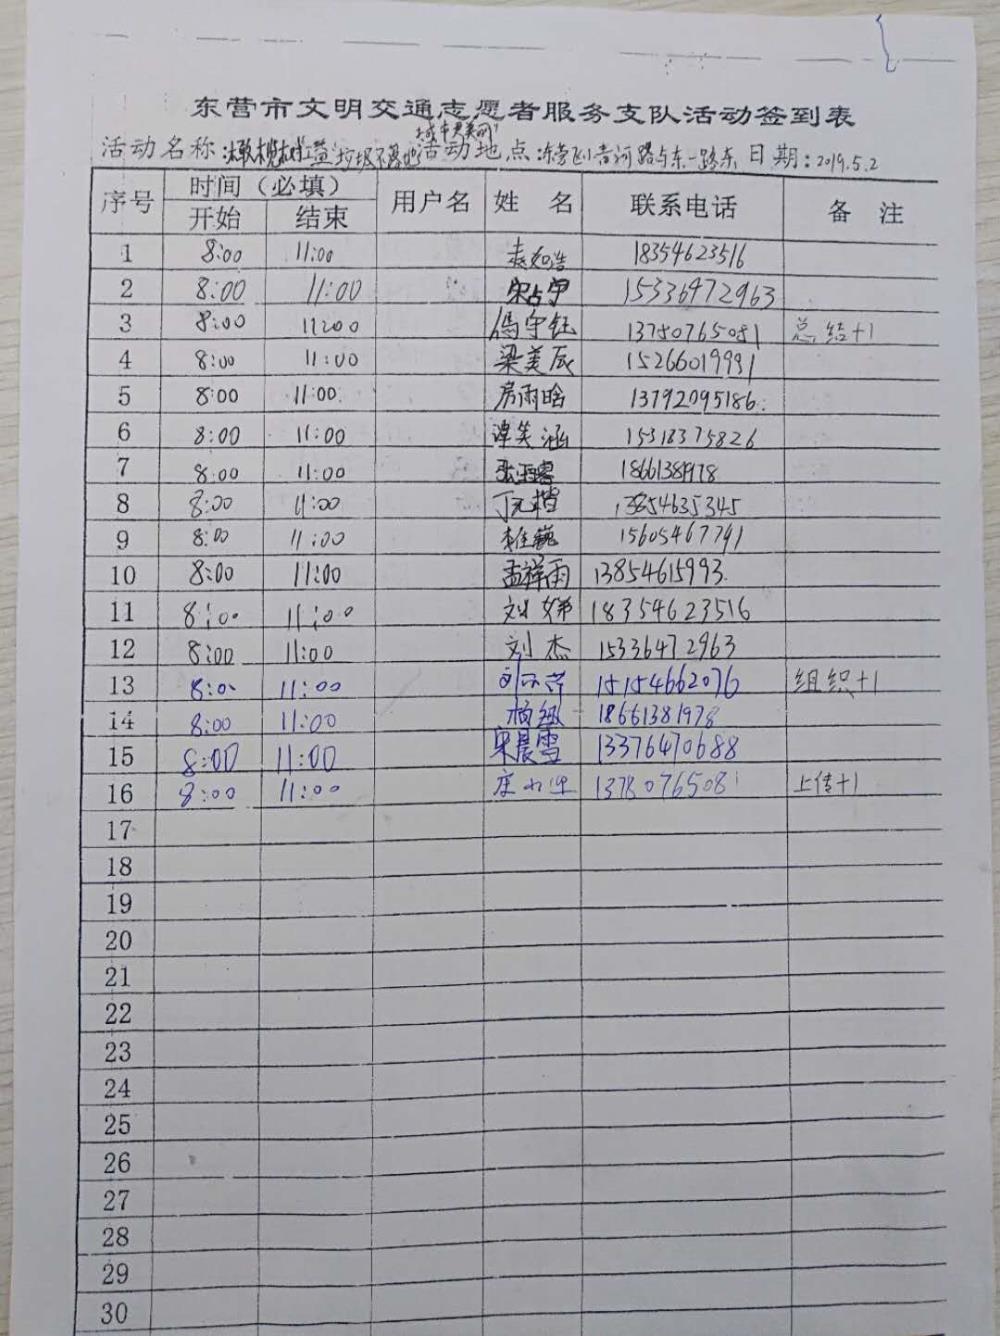 东营市文明交通志愿者服务支队活动签到表
城市更美丽"
活动名称:橄榄树公益"垃圾不落地 活动地点:东营区黄河路与东一路东 日期:2019.5.2
序号 时间（必填） 用户名 姓 名 联系电话 备 注
开始 结束
1 8:00 11:00 袁如浩 18354623516
2 8:00 11:00 宋占宇 15336472963
3 8:00 11:00 冯守钰 13780765081 总结+1
4 8:00 11:00 梁美辰 15266019991
5 8:00 11:00 房雨晗 13792095186
6 8:00 11:00 谭笑涵 15318375826
7 8:00 11:00 18661381978
8 8:00 11:00 丁元楷 13854635345
9 8:00 11:00 15605467791
10 8:00 11:00 孟祥雨 13854615993
11 8:00 11:00 刘娣 18354623516
12 8:00 11:00 刘杰 15336472963
13 8:00 11:00 15154662076 组织+1
14 8:00 11:00 18661381978
15 8:00 11:00 宋晨雪 13376470688
16 8:00 11:00 13780765081 上传+1
17
18
19
20
21
22
23
24
25
26
27
28
29
30